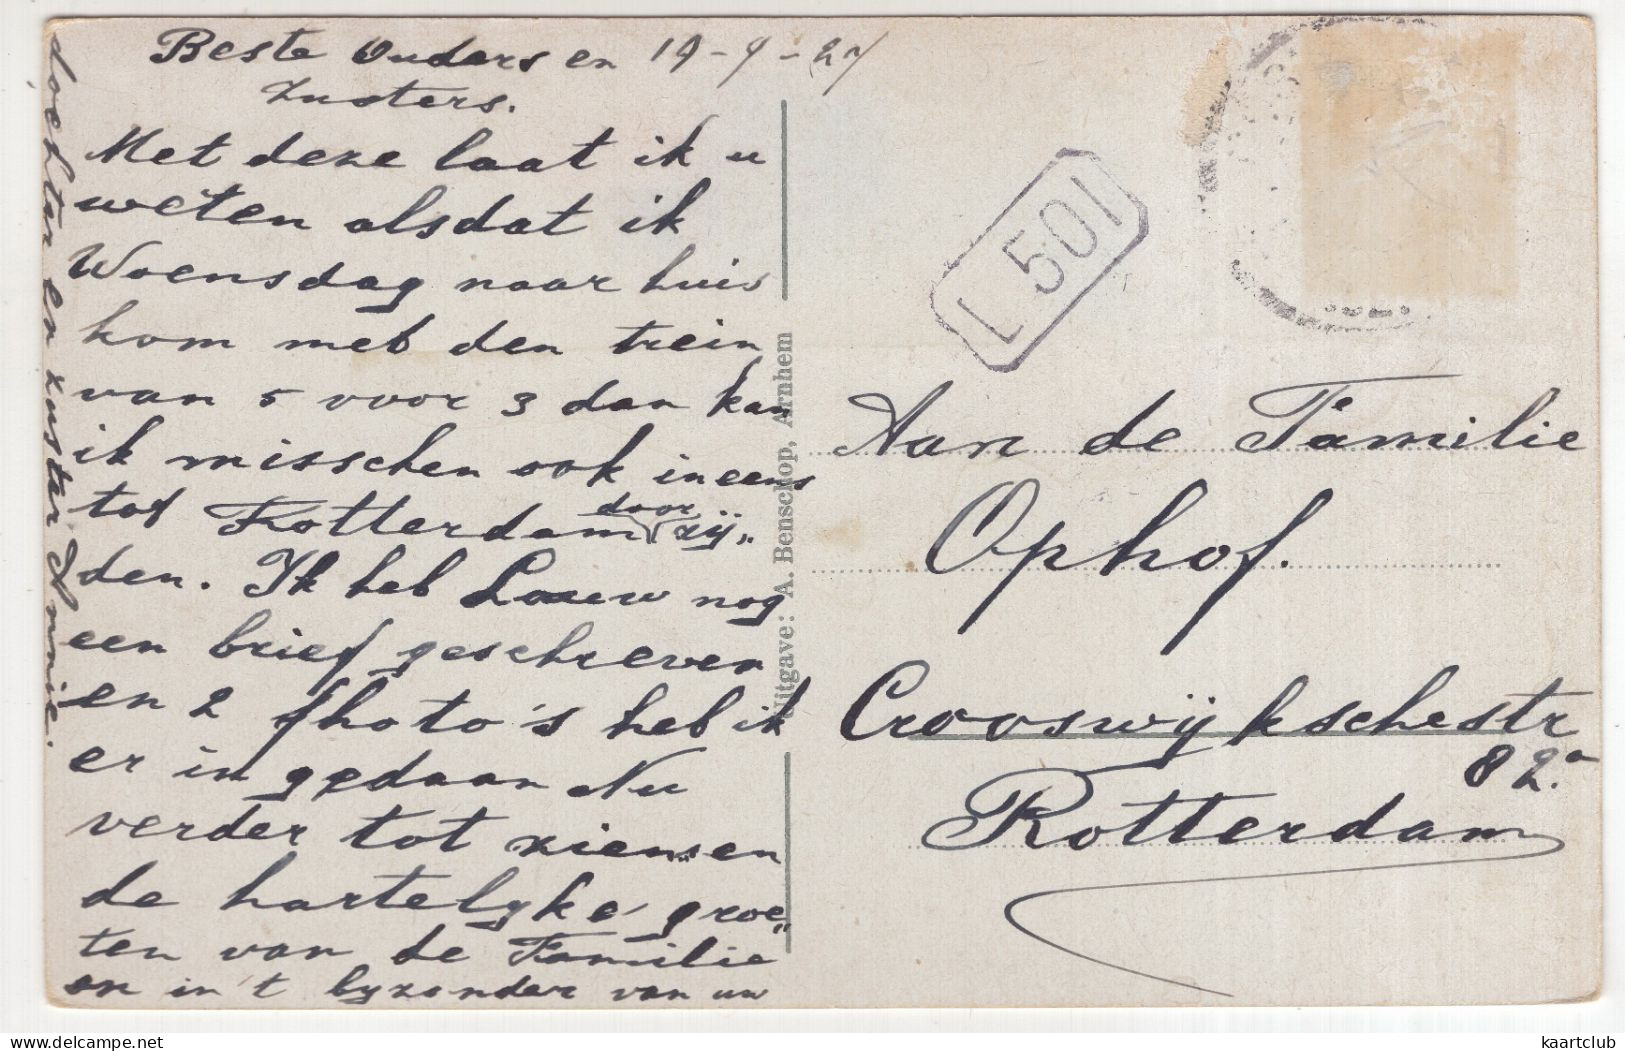 Beste Ouders en 19-9-27
Zusters.
Met deze laat ik u
weten alsdat ik
Woensdag naar huis
kom met den trein
van 5 voor 3 dan kan
ik misschen ook ineens
tot Rotterdam door rij„
den. Ik heb Louw nog
een brief geschreven
en 2 photo's heb ik
er in gedaan Nu
verder tot ziens en
de hartelyke groe„
ten van de Familie
en in 't byzonder van uw
dochter en zuster Annie.
Uitgave: A. Benschop, Arnhem
L 501
Aan de Familie
Ophof.
Crooswijkschestr
82a
Rotterdam
delcampe.net
kaartclub